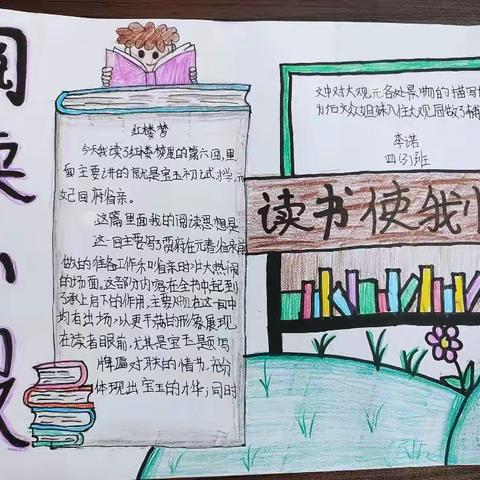 阅读小报
红楼梦
今天我读了红楼梦里的第六回,里
面主要讲的就是宝玉初试才,
妃回府省亲。
这篇里面我的阅读思想是
这一回主要写了贾府在元春省亲前
做的准备工作和省亲时的盛大热闹
的场面。这部分内容在全书中起到
了承上启下的作用,主要人物在这一回中
均有出场,以更丰满的形象展现
在读者眼前,尤其是宝玉题写
牌匾对联的情节,充分
体现出宝玉的才华;同时
文中对大观元各处景物的描写
为后文众姐妹入住大观园做了铺
李诺
四(3)班
读书使我快